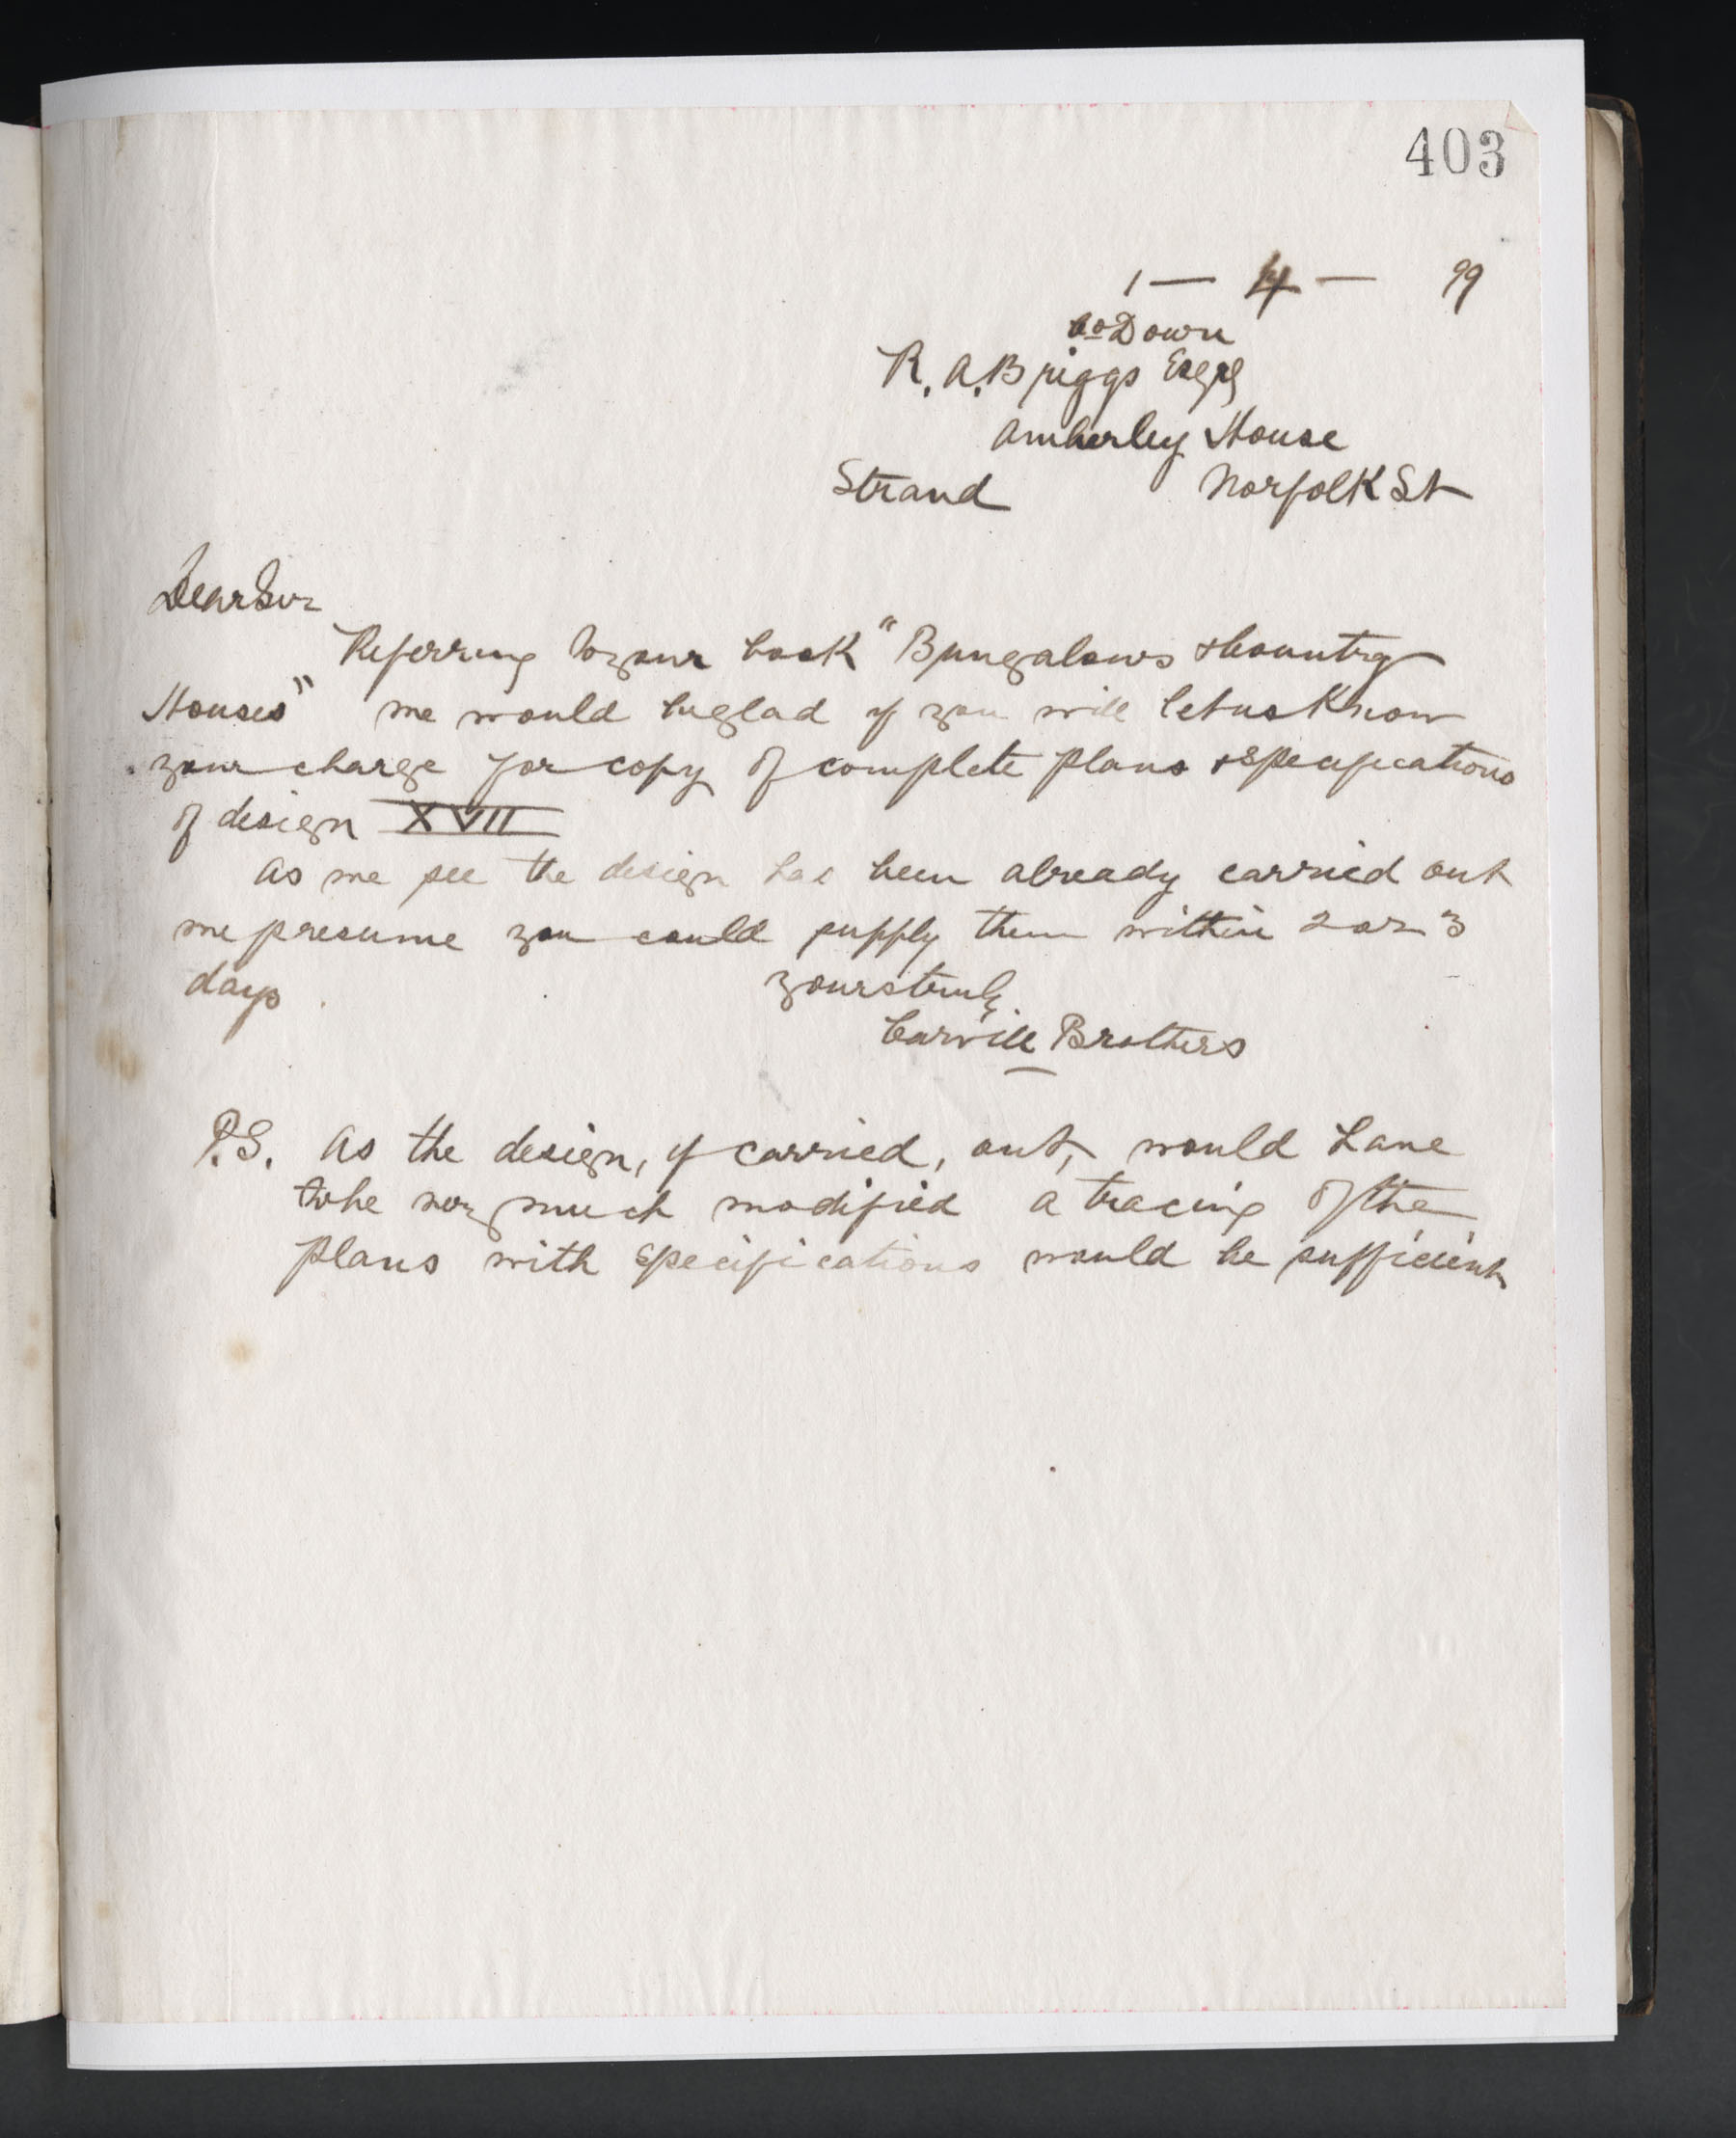 403
1 — 4 — 99
Co Down
R. A. Briggs Esqre
Amberley House
Strand Norfolk St
Dear Sir
Referring to your book "Bungalows & Country
Houses" we would be glad if you will let us know
your charge for copy of complete plans & specifications
of design XVII
As we see the design has been already carried out
we presume you could supply them within 2 or 3
days
yours truly
Carvill Brothers
P.S. As the design, if carried, out, would have
to be very much modified a tracing of the
plans with specifications would be sufficient